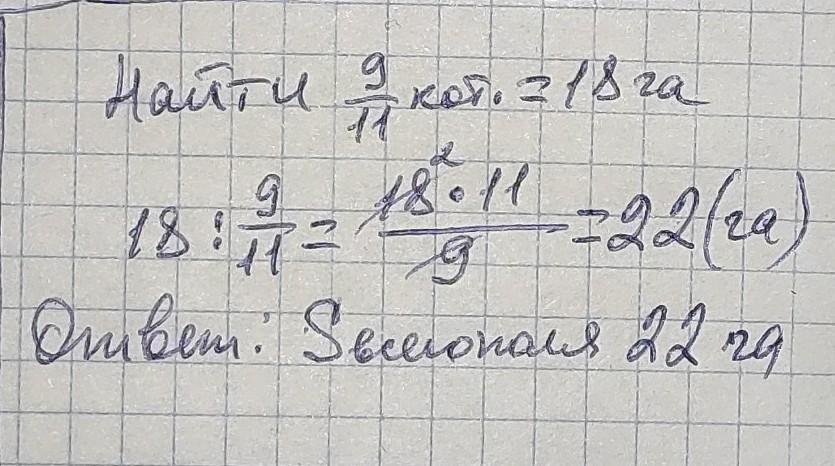 Найти 9/11 кот. = 18 га
18 : 9/11 = 18² · 11 / 9 = 22 (га)
Ответ: S всего поля 22 га